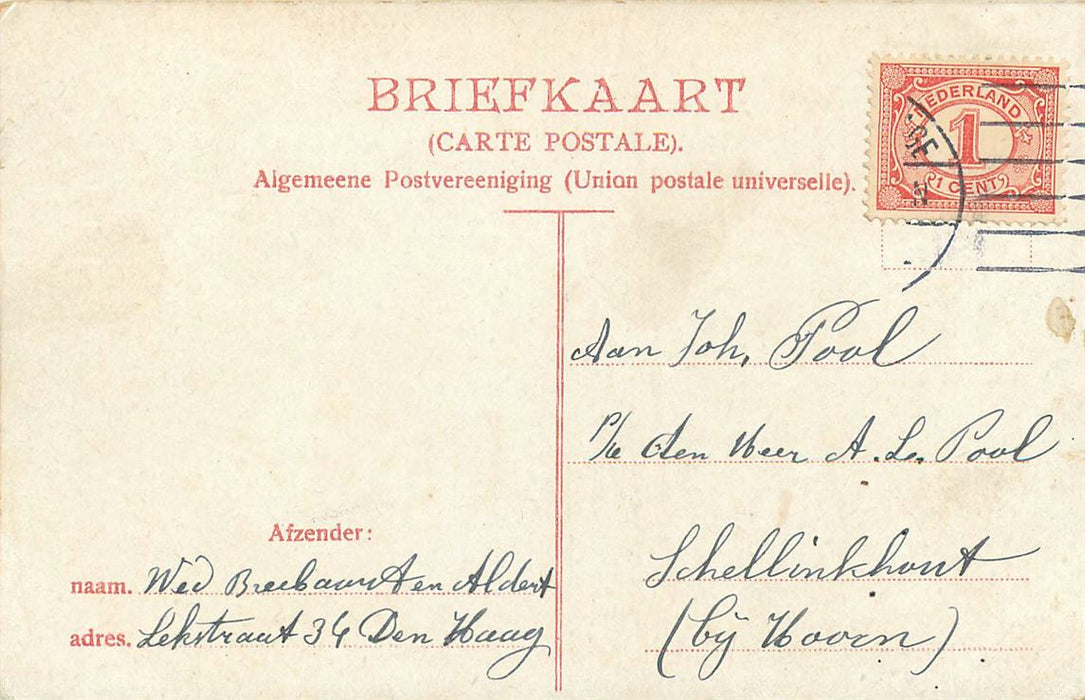 BRIEFKAART
(CARTE POSTALE).
Algemeene Postvereeniging (Union postale universelle).
NEDERLAND
1
1 CENT
Aan Joh. Pool
P/e den Heer A. L. Pool
Schellinkhout
(bij Hoorn)
Afzender:
naam. Wed Breebaart en Aldert
adres. Lekstraat 34 Den Haag